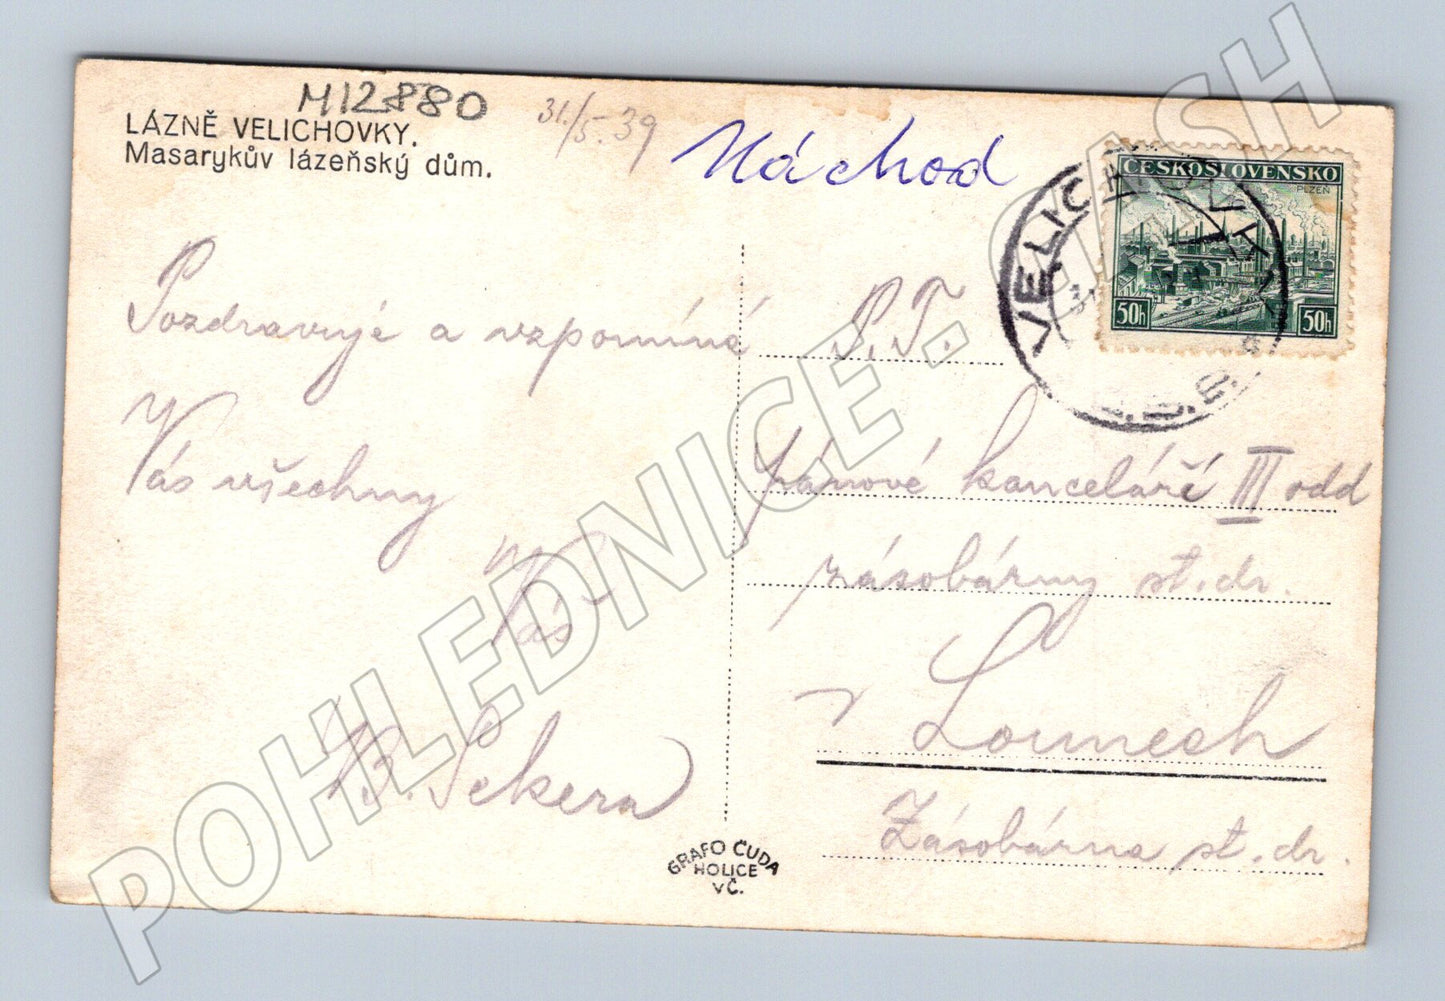 M12880
31./5.39
Náchod
LÁZNĚ VELICHOVKY.
Masarykův lázeňský dům.
ČESKOSLOVENSKO
PLZEŇ
50h 50h
VELICHOVKY
Pozdravuje a vzpomíná
Vás všechny
Váš
B. Sekera
P.T.
kanceláře III odd
zásobárny st. dr.
v Lounech
Zásobárna st. dr.
GRAFO ČUDA
HOLICE
VČ.
POHLEDNICE.CASH